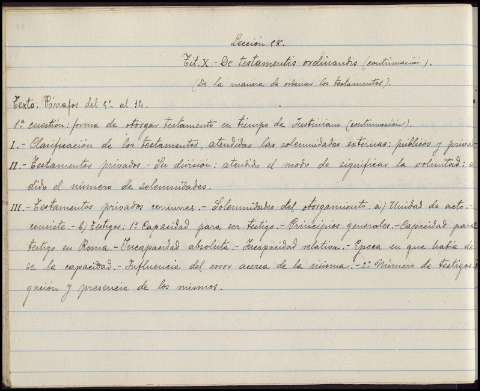 Lección 28.
Tit. X.- De testamentis ordinandis (continuación).
(De la manera de ordenar los testamentos).
Texto. Párrafos del 5º al 14.
1ª cuestión: forma de otorgar testamento en tiempo de Justiniano (continuación).
I.- Clasificación de los testamentos, atendidas las solemnidades externas: públicos y priva-
II.- Testamentos privados.- Su división: atendido el modo de significar la voluntad: a
dido el número de solemnidades.
III.- Testamentos privados comunes.- Solemnidades del otorgamiento. a) Unidad de acto.-
consiste.- b) Testigos: 1º Capacidad para ser testigo.- Principios generales.- Capacidad para
testigo en Roma.- Incapacidad absoluta.- Incapacidad relativa.- Epoca en que había de
se la capacidad.- Influencia del error acerca de la misma.- 2º Número de testigos
gación y presencia de los mismos.